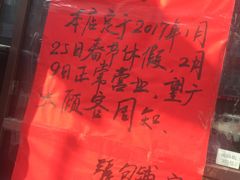 本店定于2017年1月
25日春节休假,2月
9日正常营业,望广
大顾客周知.